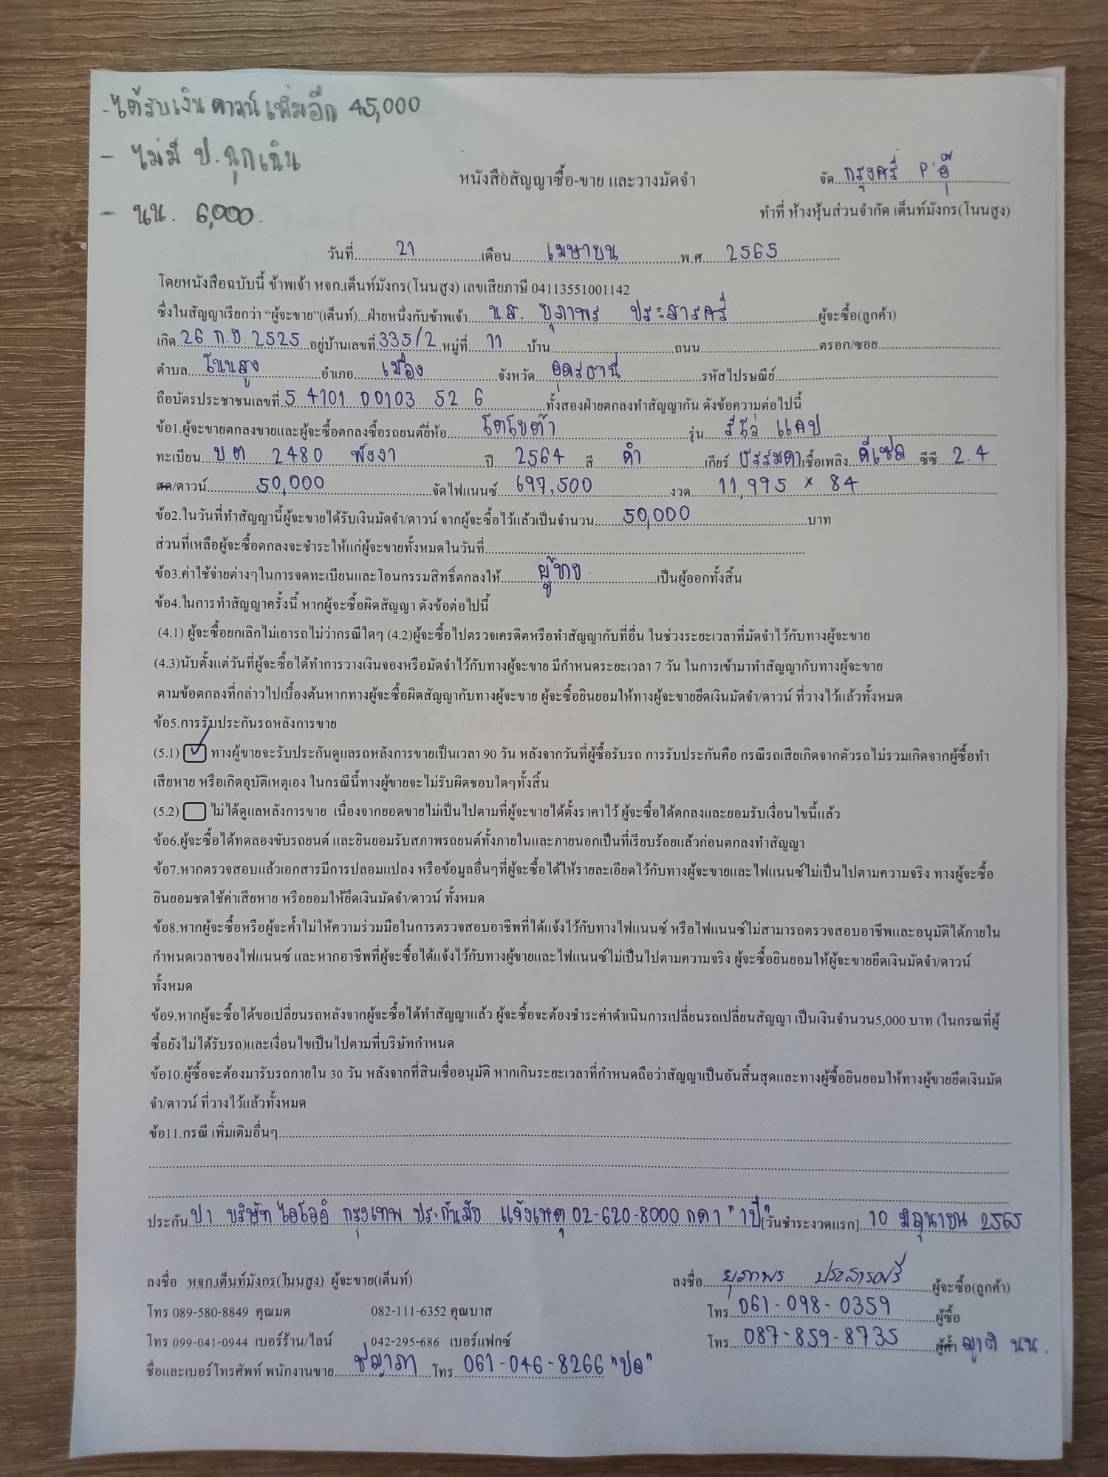 - ได้รับเงิน ดาวน์ เพิ่มอีก 45,000
- ไม่มี ป. ฉุกเฉิน
- นน. 6,000.
หนังสือสัญญาซื้อ-ขาย และวางมัดจำ
จัด กรุงศรี P'อุ๊
ทำที่ ห้างหุ้นส่วนจำกัด เต็นท์มังกร(โนนสูง)
วันที่ 21 เดือน เมษายน พ.ศ. 2565
โดยหนังสือฉบับนี้ ข้าพเจ้า หจก.เต็นท์มังกร(โนนสูง) เลขเสียภาษี 04113551001142
ซึ่งในสัญญาเรียกว่า "ผู้จะขาย"(เต็นท์)...ฝ่ายหนึ่งกับข้าพเจ้า น.ส. ยุภาพร ประสารศรี ผู้จะซื้อ(ลูกค้า)
เกิด 26 ก.ย. 2525 อยู่บ้านเลขที่ 335/2 หมู่ที่ 11 บ้าน ถนน ตรอก/ซอย
ตำบล โนนสูง อำเภอ เมือง จังหวัด อุดรธานี รหัสไปรษณีย์
ถือบัตรประชาชนเลขที่ 5 4101 00103 52 6 ทั้งสองฝ่ายตกลงทำสัญญากัน ดังข้อความต่อไปนี้
ข้อ1.ผู้จะขายตกลงขายและผู้จะซื้อตกลงซื้อรถยนต์ยี่ห้อ โตโยต้า รุ่น รีโว่ แคป
ทะเบียน บต 2480 พังงา ปี 2564 สี ดำ เกียร์ ธรรมดา เชื้อเพลิง ดีเซล ซีซี 2.4
สด/ดาวน์ 50,000 จัดไฟแนนซ์ 697,500 งวด 11,995 x 84
ข้อ2.ในวันที่ทำสัญญานี้ผู้จะขายได้รับเงินมัดจำ/ดาวน์ จากผู้จะซื้อไว้แล้วเป็นจำนวน 50,000 บาท
ส่วนที่เหลือผู้จะซื้อตกลงจะชำระให้แก่ผู้จะขายทั้งหมดในวันที่
ข้อ3.ค่าใช้จ่ายต่างๆในการจดทะเบียนและโอนกรรมสิทธิ์ตกลงให้ ผู้ขาย เป็นผู้ออกทั้งสิ้น
ข้อ4.ในการทำสัญญาครั้งนี้ หากผู้จะซื้อผิดสัญญา ดังข้อต่อไปนี้
(4.1) ผู้จะซื้อยกเลิกไม่เอารถไม่ว่ากรณีใดๆ (4.2)ผู้จะซื้อไปตรวจเครดิตหรือทำสัญญากับที่อื่น ในช่วงระยะเวลาที่มัดจำไว้กับทางผู้จะขาย
(4.3)นับตั้งแต่วันที่ผู้จะซื้อได้ทำการวางเงินจองหรือมัดจำไว้กับทางผู้จะขาย มีกำหนดระยะเวลา 7 วัน ในการเข้ามาทำสัญญากับทางผู้จะขาย
ตามข้อตกลงที่กล่าวไปเบื้องต้นหากทางผู้จะซื้อผิดสัญญากับทางผู้จะขาย ผู้จะซื้อยินยอมให้ทางผู้จะขายยึดเงินมัดจำ/ดาวน์ ที่วางไว้แล้วทั้งหมด
ข้อ5.การรับประกันรถหลังการขาย
(5.1) ทางผู้ขายจะรับประกันดูแลรถหลังการขายเป็นเวลา 90 วัน หลังจากวันที่ผู้ซื้อรับรถ การรับประกันคือ กรณีรถเสียเกิดจากตัวรถไม่รวมเกิดจากผู้ซื้อทำ
เสียหาย หรือเกิดอุบัติเหตุเอง ในกรณีนี้ทางผู้ขายจะไม่รับผิดชอบใดๆทั้งสิ้น
(5.2) ไม่ได้ดูแลหลังการขาย เนื่องจากยอดขายไม่เป็นไปตามที่ผู้จะขายได้ตั้งราคาไว้ ผู้จะซื้อได้ตกลงและยอมรับเงื่อนไขนี้แล้ว
ข้อ6.ผู้จะซื้อได้ทดลองขับรถยนต์ และยินยอมรับสภาพรถยนต์ทั้งภายในและภายนอกเป็นที่เรียบร้อยแล้วก่อนตกลงทำสัญญา
ข้อ7.หากตรวจสอบแล้วเอกสารมีการปลอมแปลง หรือข้อมูลอื่นๆที่ผู้จะซื้อได้ให้รายละเอียดไว้กับทางผู้จะขายและไฟแนนซ์ไม่เป็นไปตามความจริง ทางผู้จะซื้อ
ยินยอมชดใช้ค่าเสียหาย หรือยอมให้ยึดเงินมัดจำ/ดาวน์ ทั้งหมด
ข้อ8.หากผู้จะซื้อหรือผู้จะค้ำไม่ให้ความร่วมมือในการตรวจสอบอาชีพที่ได้แจ้งไว้กับทางไฟแนนซ์ หรือไฟแนนซ์ไม่สามารถตรวจสอบอาชีพและอนุมัติได้ภายใน
กำหนดเวลาของไฟแนนซ์ และหากอาชีพที่ผู้จะซื้อได้แจ้งไว้กับทางผู้ขายและไฟแนนซ์ไม่เป็นไปตามความจริง ผู้จะซื้อยินยอมให้ผู้จะขายยึดเงินมัดจำ/ดาวน์
ทั้งหมด
ข้อ9.หากผู้จะซื้อได้ขอเปลี่ยนรถหลังจากผู้จะซื้อได้ทำสัญญาแล้ว ผู้จะซื้อจะต้องชำระค่าดำเนินการเปลี่ยนรถเปลี่ยนสัญญา เป็นเงินจำนวน5,000 บาท (ในกรณที่ผู้
ซื้อยังไม่ได้รับรถ)และเงื่อนไขเป็นไปตามที่บริษัทกำหนด
ข้อ10.ผู้ซื้อจะต้องมารับรถภายใน 30 วัน หลังจากที่สินเชื่ออนุมัติ หากเกินระยะเวลาที่กำหนดถือว่าสัญญาเป็นอันสิ้นสุดและทางผู้ซื้อยินยอมให้ทางผู้ขายยึดเงินมัด
จำ/ดาวน์ ที่วางไว้แล้วทั้งหมด
ข้อ11.กรณี เพิ่มเติมอื่นๆ
ประกัน ป1 บริษัท ไอโออิ กรุงเทพ ประกันภัย แจ้งเหตุ 02-620-8000 กด1 "1ปี" [วันชำระงวดแรก] 10 มิถุนายน 2565
ลงชื่อ หจก.เต็นท์มังกร(โนนสูง) ผู้จะขาย(เต็นท์) ลงชื่อ ยุภาพร ประสารศรี ผู้จะซื้อ(ลูกค้า)
โทร 089-580-8849 คุณมด 082-111-6352 คุณบาส โทร 061-098-0359 ผู้ซื้อ
โทร 099-041-0944 เบอร์ร้าน/ไลน์ 042-295-686 เบอร์แฟกซ์ โทร 087-859-8735 ผู้ค้ำ ญาติ นน.
ชื่อและเบอร์โทรศัพท์ พนักงานขาย ชญาภา โทร 061-046-8266 "ปอ"